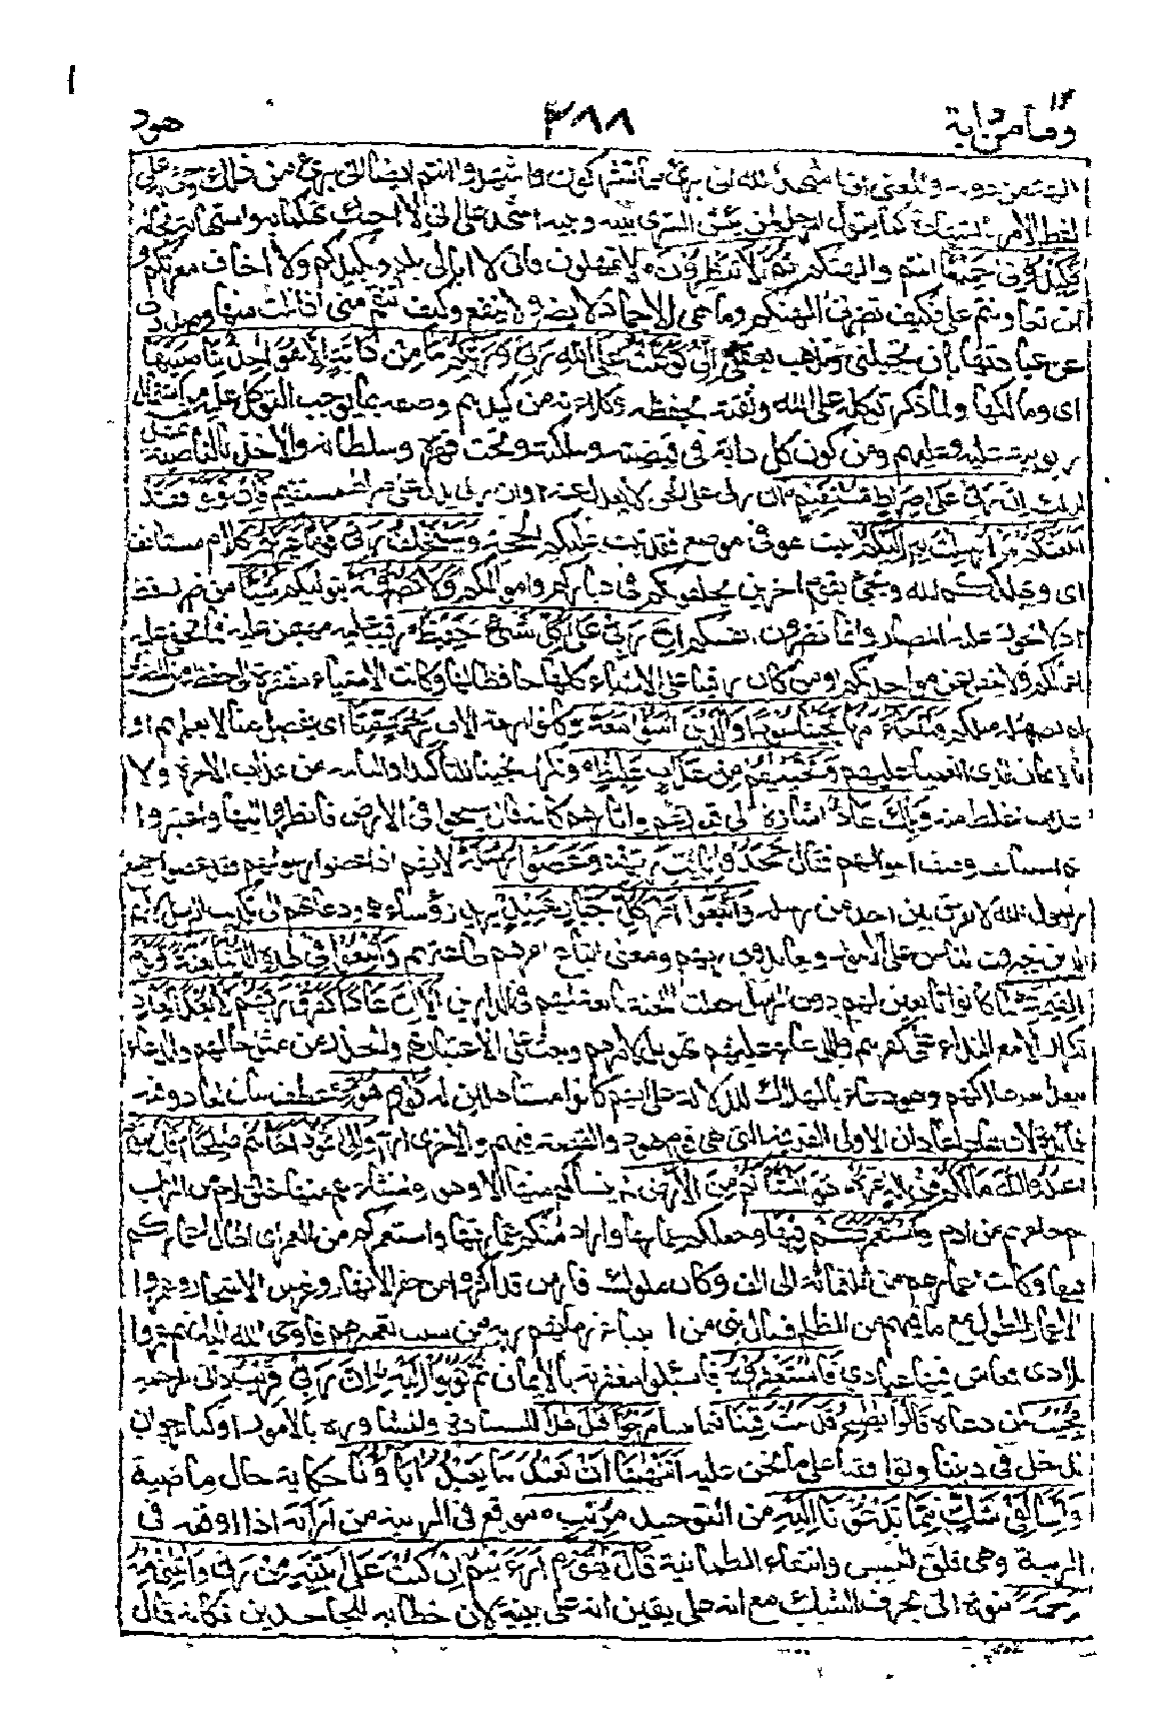 ١٢
ومامن دابة ٣٨٨ هود
من دونه والمعنى انى اشهد الله انى برئ مما تشركون واشهدوا انتم ايضا انى برئ من ذلك وجئ به على
لفظ الامر بالشهادة كما يقول الرجل لمن يبس الثرى بينه وبينه اشهد على انى لا احبك تهكما به واستهانة بحاله
فَكِيْدُوْنِيْ جَمِيْعًا انتم والهتكم ثُمَّ لَا تُنْظِرُوْنِ لا تمهلون فانى لا ابالى بكم وبكيدكم ولا اخاف معرتكم و
ان تعاونتم على وكيف تضرنى الهتكم وما هى الا جماد لا يضر ولا ينفع وكيف تنتقم منى اذا نلت منها وصددت
عن عبادتها بان تخبلنى وتذهب بعقلى اِنِّيْ تَوَكَّلْتُ عَلَى اللهِ رَبِّيْ وَرَبِّكُمْ مَا مِنْ دَابَّةٍ اِلَّا هُوَ اٰخِذٌ بِنَاصِيَتِهَا
اى ومالكها ولما ذكر توكله على الله وثقته بحفظه وكلاءته من كيدهم وصفه بما يوجب التوكل عليه من اشتمال
ربوبيته عليه وعليهم ومن كون كل دابة فى قبضته وملكته وتحت قهره وسلطانه والاخذ بالناصية تمثيل
لذلك اِنَّ رَبِّيْ عَلٰى صِرَاطٍ مُّسْتَقِيْمٍ ان ربى على الحق لا يعدل عنه او ان ربى يدل على صراط مستقيم فَاِنْ تَوَلَّوْا فَقَدْ
اَبْلَغْتُكُمْ مَا اُرْسِلْتُ بِهٖ اِلَيْكُمْ هو فى موضع فقد ثبتت عليكم الحجة وَيَسْتَخْلِفُ رَبِّيْ قَوْمًا غَيْرَكُمْ كلام مستانف
اى ويهلككم الله ويجئ بقوم اخرين يخلفونكم فى دياركم واموالكم وَلَا تَضُرُّوْنَهٗ بتوليكم شَيْئًا من ضر قط
اذ لا يجوز عليه المضار وانما تضرون انفسكم اِنَّ رَبِّيْ عَلٰى كُلِّ شَيْءٍ حَفِيْظٌ رقيب عليه مهيمن فما تخفى عليه
اعمالكم ولا يغفل عن مواخذتكم او من كان رقيبا على الاشياء كلها حافظا لها وكانت الاشياء مفتقرة الى حفظه
نَجَّيْنَا هُوْدًا وَّالَّذِيْنَ اٰمَنُوْا مَعَهٗ وكانوا اربعة الاف بِرَحْمَةٍ مِّنَّا اى بفضل منا لا بعملهم او
بالايمان الذى انعمنا عليهم وَنَجَّيْنٰهُمْ مِنْ عَذَابٍ غَلِيْظٍ وتكرار نجينا للتاكيد او الثانية من عذاب الاخرة ولا
عذاب اغلظ منه وَتِلْكَ عَادٌ اشارة الى قبورهم واثارهم كانه قال سيحوا فى الارض فانظروا اليها واعتبروا
ثم استانف وصف احوالهم فقال جَحَدُوْا بِاٰيٰتِ رَبِّهِمْ وَعَصَوْا رُسُلَهٗ لانهم اذا عصوا رسولهم فقد عصوا جميع
رسل الله لا نفرق بين احد من رسله وَاتَّبَعُوْا اَمْرَ كُلِّ جَبَّارٍ عَنِيْدٍ يريد رؤساءهم ودعاتهم الى تكذيب الرسل
ومعنى اتباع امرهم طاعتهم وَاُتْبِعُوْا فِيْ هٰذِهِ الدُّنْيَا لَعْنَةً وَّيَوْمَ
الْقِيٰمَةِ لما كانوا تابعين لهم دون الرسل جعلت اللعنة تابعة لهم فى الدارين اَلَا اِنَّ عَادًا كَفَرُوْا رَبَّهُمْ اَلَا بُعْدًا لِّعَادٍ
تكرار الا مع النداء على كفرهم والدعاء عليهم تهويل لامرهم وبعث على الاعتبار بهم والحذر من مثل حالهم والدعاء
ببعد بعد هلاكهم وهو دعاء بالهلاك للدلالة على انهم كانوا مستاهلين له قَوْمِ هُوْدٍ عطف بيان لعاد وفيه
فائدة لان عادا عادان الاولى القديمة التى هى قوم هود والقصة فيهم والاخرى ارم وَاِلٰى ثَمُوْدَ اَخَاهُمْ صٰلِحًا قَالَ يٰقَوْمِ
اعْبُدُوا اللهَ مَا لَكُمْ مِّنْ اِلٰهٍ غَيْرُهٗ هُوَ اَنْشَاَكُمْ مِّنَ الْاَرْضِ لم ينشئكم منها الا هو وانشاؤهم منها خلق ادم من التراب
ثم خلقهم من ادم وَاسْتَعْمَرَكُمْ فِيْهَا وجعلكم عمارها واراد منكم عمارتها واستعمركم من العمر اى اطال اعماركم
فيها وكانت اعمارهم من ثلثمائة الى الف وكان ملوك فارس قد اكثروا من حفر الانهار وغرس الاشجار وعمروا
الاعمار الطوال مع ما فيهم من الظلم فسال نبى من انبياء زمانهم ربه عن سبب تعميرهم فاوحى الله اليه انهم عمروا
بلادى فعاش فيها عبادى فَاسْتَغْفِرُوْهُ فاسئلوا مغفرته بالايمان ثُمَّ تُوْبُوْا اِلَيْهِ اِنَّ رَبِّيْ قَرِيْبٌ دانى الرحمة
مُّجِيْبٌ لمن دعاه قَالُوْا يٰصٰلِحُ قَدْ كُنْتَ فِيْنَا فيما بيننا مَرْجُوًّا قَبْلَ هٰذَا للسيادة والمشاورة بالامور او كنا نرجو ان
تدخل فى ديننا وتوافقنا على ما نحن عليه اَتَنْهٰنَا اَنْ نَّعْبُدَ مَا يَعْبُدُ اٰبَاؤُنَا حكاية حال ماضية
وَاِنَّنَا لَفِيْ شَكٍّ مِّمَّا تَدْعُوْنَا اِلَيْهِ من التوحيد مُرِيْبٍ موقع فى الريبة من ارابه اذا اوقعه فى
الريبة وهى قلق النفس وانتفاء الطمانينة قَالَ يٰقَوْمِ اَرَءَيْتُمْ اِنْ كُنْتُ عَلٰى بَيِّنَةٍ مِّنْ رَّبِّيْ وَاٰتٰنِيْ مِنْهُ
رَحْمَةً نبوة اتى بحرف الشك مع انه على يقين انه على بينة لان خطابه للجاحدين فكانه قال